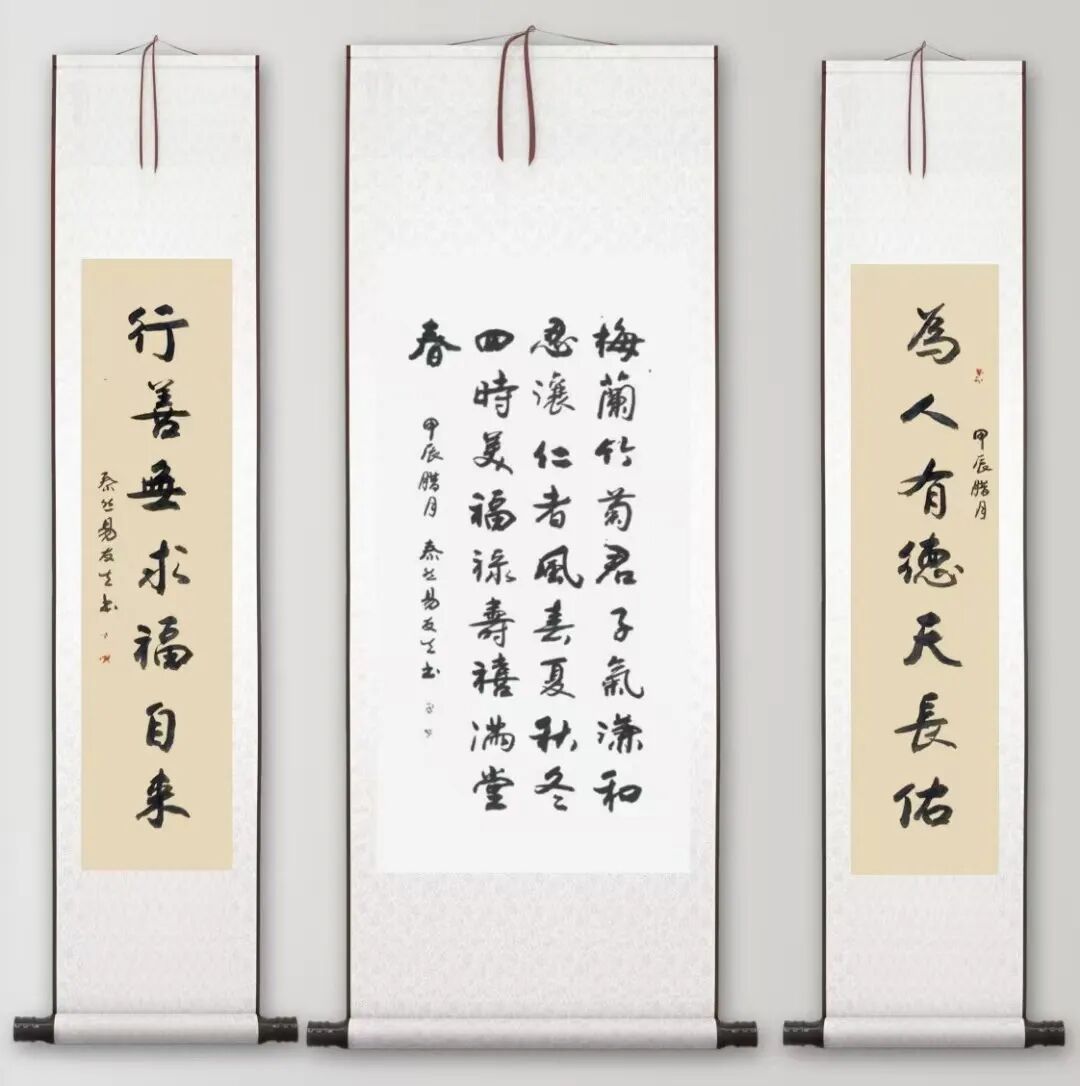 為人有德天長佑
甲辰腊月
梅蘭竹菊君子氣謙和
忍讓仁者風春夏秋冬
四時美福禄壽禧满堂
春
甲辰腊月 泰然易友生书
行善無求福自来
泰然易友生书